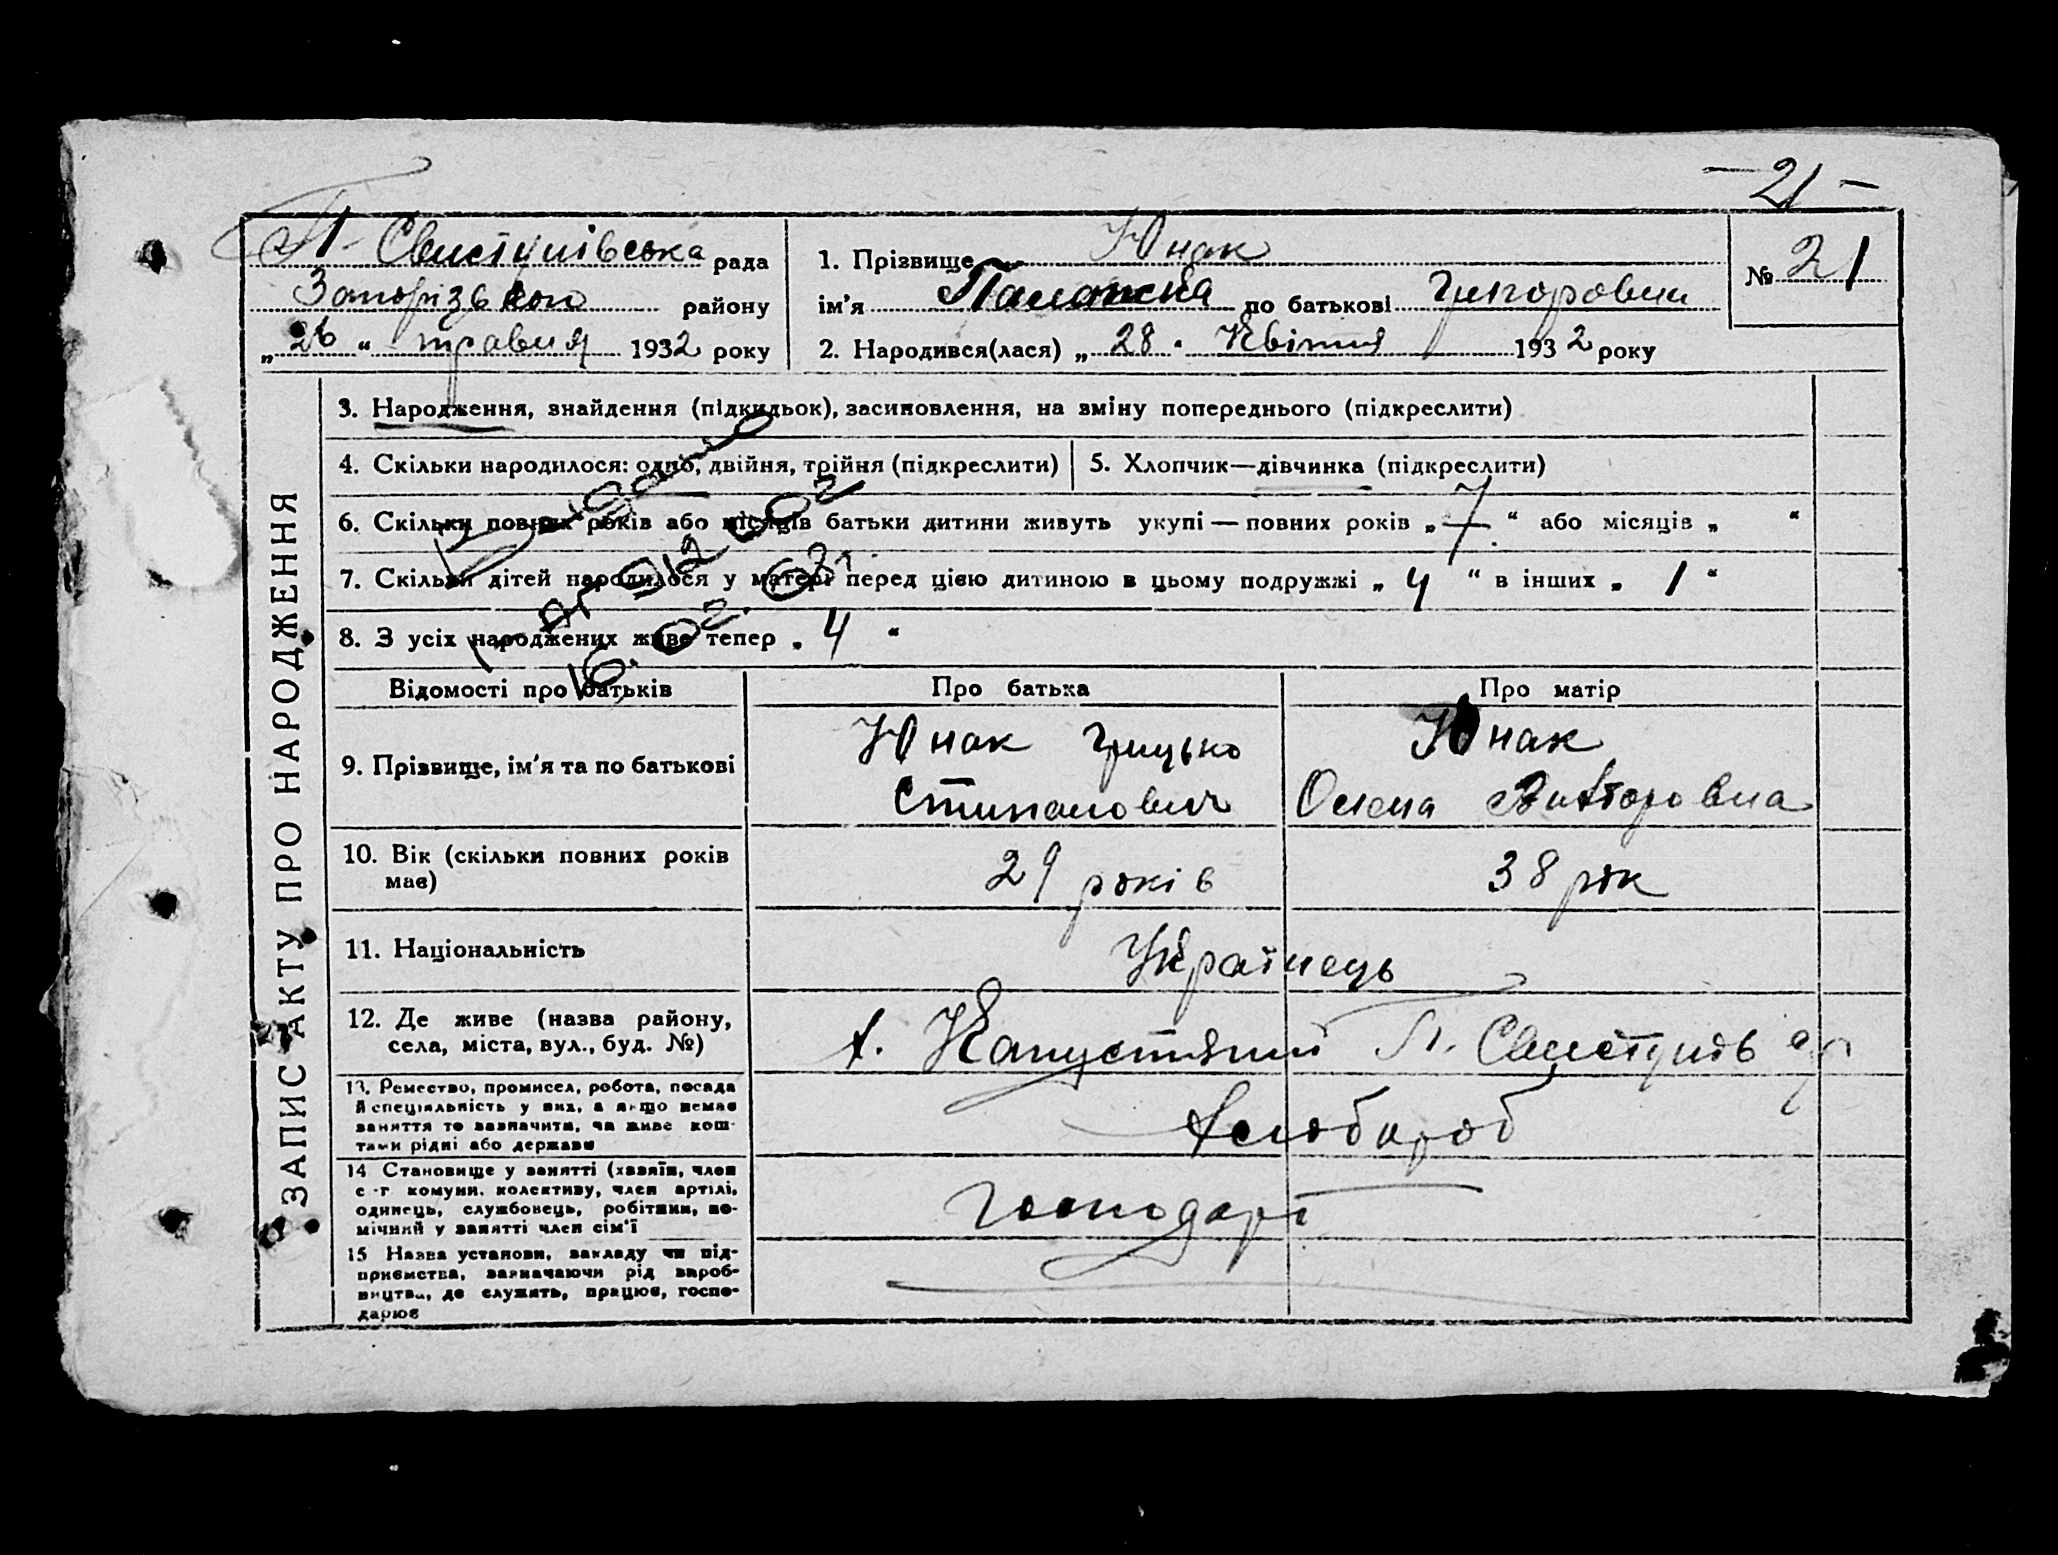 — 21 —
П. Свистунівська рада
Запорізького району
„ 26 “ травня 1932 року
1. Прізвище Юнак
ім’я Палажка по батькові Григоровни
2. Народився(лася) „ 28 “ Квітня 1932 року
№ 21
ЗАПИС АКТУ ПРО НАРОДЖЕННЯ
3. Народження, знайдення (підкидьок), засиновлення, на зміну попереднього (підкреслити)
4. Скільки народилося: одно, двійня, трійня (підкреслити)
5. Хлопчик—дівчинка (підкреслити)
6. Скільки повних років або місяців батьки дитини живуть укупі — повних років „ 7 “ або місяців „ “
7. Скільки дітей народилося у матері перед цією дитиною в цьому подружжі „ 4 “ в інших „ 1 “
8. З усіх народжених живе тепер „ 4 “
Видано
912602
16.02.63
Відомості про батьків
Про батька
Про матір
9. Прізвище, ім’я та по батькові
Юнак Грицько
Стипанович
Юнак
Олена Викторовна
10. Вік (скільки повних років
має)
29 років
38 рок
11. Національність
Українець
12. Де живе (назва району,
села, міста, вул., буд. №)
х. Капустяний П. Свистунів
13. Ремество, промисел, робота, посада
й спеціяльність у них, а якщо немає
заняття то зазначити, чи живе кош-
тами рідні або держави
Хлібороб
14 Становище у занятті (хазяїн, член
с.-г комуни, колективу, член артілі,
одинець, службовець, робітник, по-
мічний у занятті член сім’ї
Господарі
15 Назва установи, закладу чи під-
приємства, зазначаючи рід вироб-
ництва, де служить, працює, госпо-
дарює